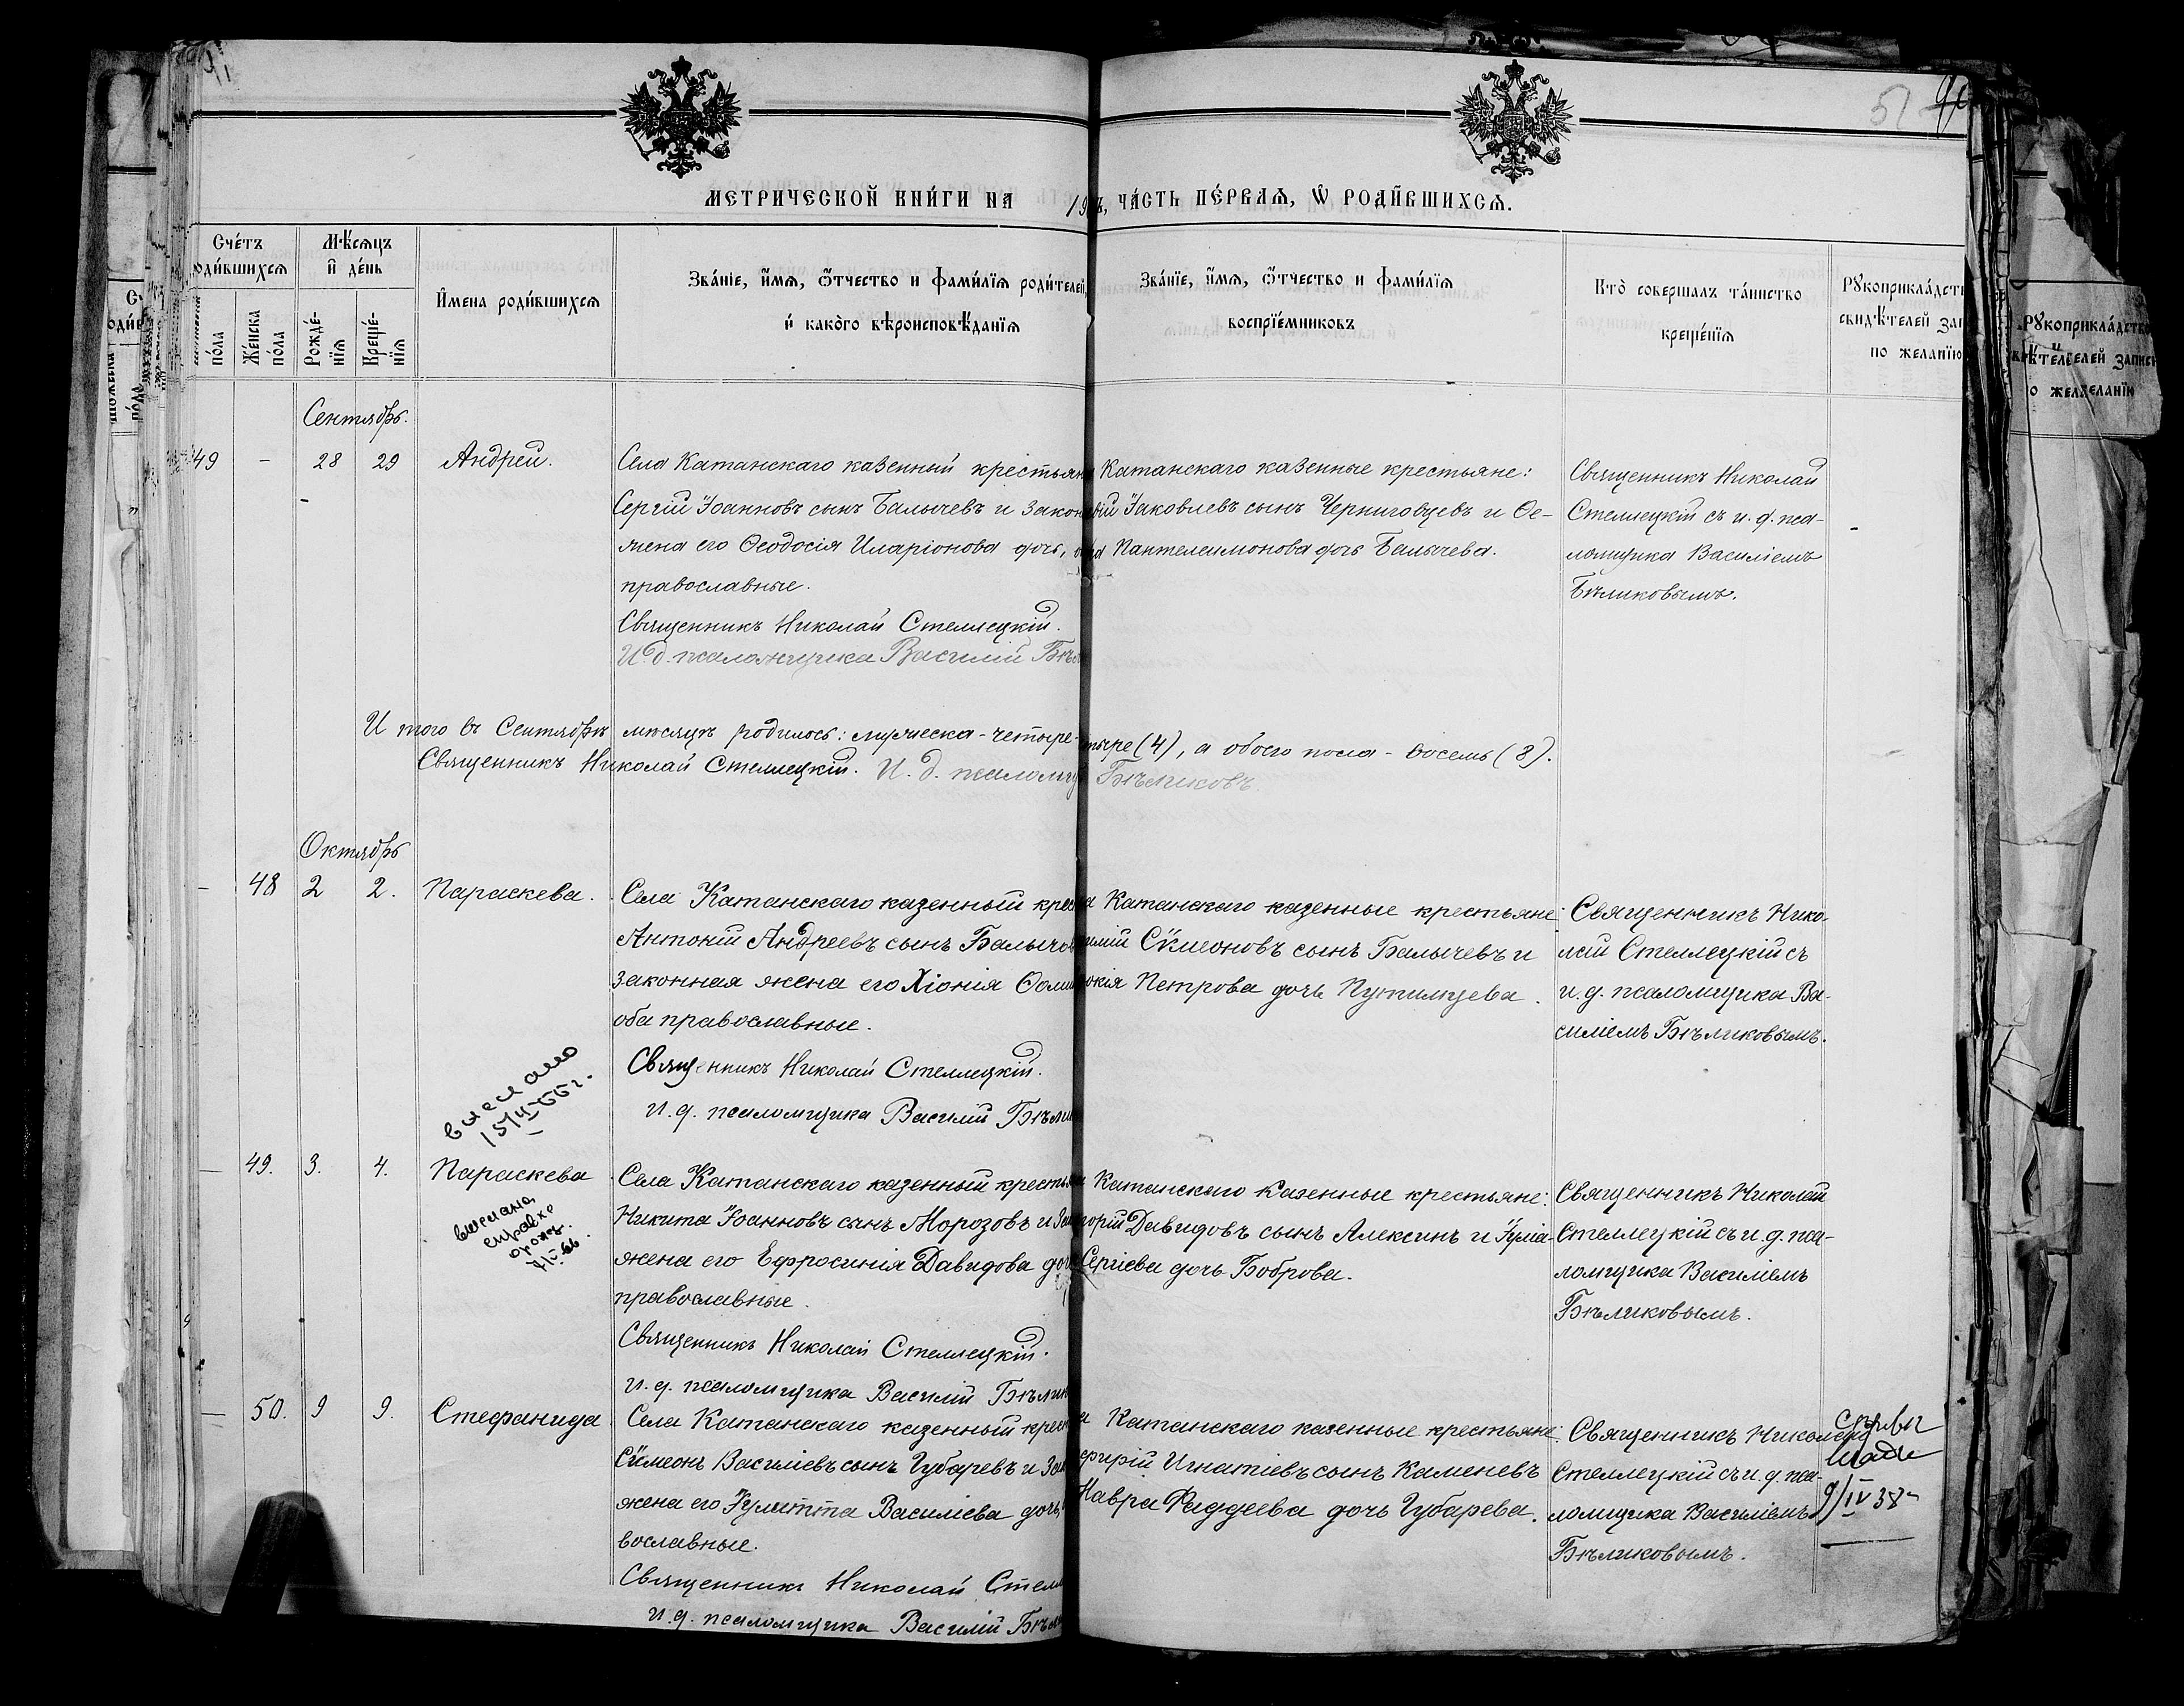 51
МЕТРИЧЕСКОЙ КНИ́ГИ НА 19
ЧА́СТЬ ПЕ́РВАѦ, Ѡ҆ РОДИ́ВШИХСѦ.
Сче́тъ
оди́вшихсѧ
Мѣ́сѧцъ
и҆ де́нь
И҆мена роди́вшихсѧ
Зва́нїе, и҆́мѧ, ѻ҆́тчество и фами́лїѧ роди́телей,
и҆ како́гѡ вѣроисповѣ́данїѧ
Зва́нїе, и҆́мѧ, ѻ҆́тчество и фами́лїѧ
воспрїе́мниковъ
Кто̀ совершалъ та́инство
креще́нїѧ
Рꙋкоприкла́дст
свидѣ́телей за
по желанїю
по́ла
Же́нска
по́ла
Рожде́-
нїѧ
Креще́-
нїѧ
Сентябрь.
49 - 28 29 Андрей.
Села Катанскаго казенный крестьян
Сергій Іоанновъ сынъ Балычевъ и закон
жена его Ѳеодосія Иларіонова дочь,
православные.
Священникъ Николай Стеллецкій.
И.д. псаломщика Василій Бѣл
Катанскаго казенные крестьяне:
Іаковлевъ сынъ Черниговцевъ и Ѳе-
Пантелеимонова дочь Балычева.
Священникъ Николай
Стеллецкій съ и. д. пса-
ломщика Василіемъ
Бѣликовымъ.
И того въ Сентябрѣ мѣсяцѣ родилось: мужеска - четыре
тыре (4), а обоего пола - восемь (8).
Священникъ Николай Стеллецкій. И. д. псаломщ
Бѣликовъ
Октябрь
- 48 2 2. Параскева.
Села Катанскаго казенный крес
Антоній Андреевъ сынъ Балычов
законная жена его Хіонія Ѳоми
оба православные.
Священникъ Николай Стеллецкій.
и. д. псаломщика Василій Бѣли
Катанскаго казенные крестьяне:
Сѵмеоновъ сынъ Балычевъ и
окія Петрова дочь Путилцева.
Священникъ Нико-
лай Стеллецкій съ
и. д. псаломщика Ва-
силіемъ Бѣликовымъ.
выслано
- 49. 3. 4. Параскева
выслана
справка
Села Катанскаго казенный крестья
Никита Іоанновъ сынъ Морозовъ и за
жена его Ефросинія Давидова доч
православные.
Священникъ Николай Стеллецкій.
и. д. псаломщика Василій Бѣлик
Катанскаго казенные крестьяне:
горій Давидовъ сынъ Алексинъ и Іуліа-
Сергіева дочь Боброва.
Священникъ Николай
Стеллецкій съ и. д. пса-
ломщика Василіемъ
Бѣликовымъ.
- 50. 9 9. Стефанида
Села Катанскаго казенный крест
Сѵмеонъ Василіевъ сынъ Губаревъ и зак
жена его Іулитта Василіева дочь,
вославные.
Священникъ Николай Стел
и. д. псаломщика Василій Бѣл
Катанскаго казенные крестьяне:
Игнатіевъ сынъ Каменевъ
Мавра Фаддеева дочь Губарева.
Священникъ Николай
Стеллецкій съ и. д. пса-
ломщика Василіемъ
Бѣликовымъ.
9/IV 38